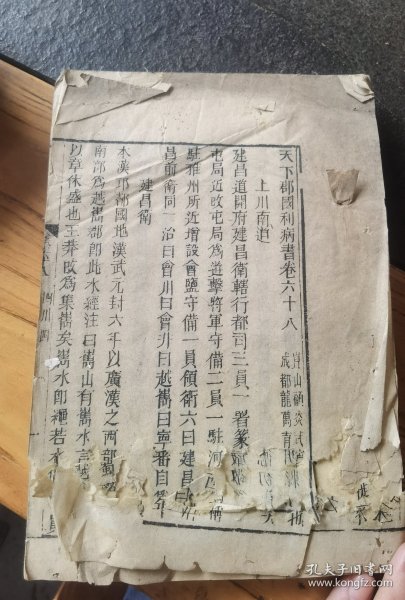 天下郡國利病書卷六十八
成都龍萬青
上川南道
建昌道開府建昌衛轄行都司三員一署篆
屯局近改屯局爲遊擊將軍守備二員一駐
駐雅州所近增設會鹽守備一員領衛六曰建昌曰
昌前衛同一治曰會川曰會川曰越嶲曰寧番自
建昌衛
本漢邛都國地漢武元封六年以廣漢之西部
南部爲越嶲郡卽此水經注曰嶲山有嶲水言越
以章休盛也王莽改爲集嶲矣嶲水卽繩若水
四川四
孔夫子旧书网
www.kongfz.com